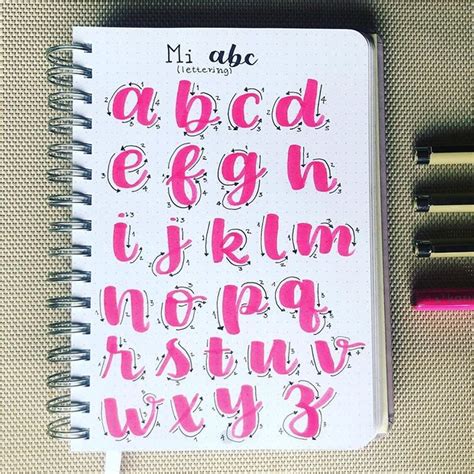 Mi abc
(lettering)
a b c d
e f g h
i j k l m
n o p q
r s t u v
w x y z